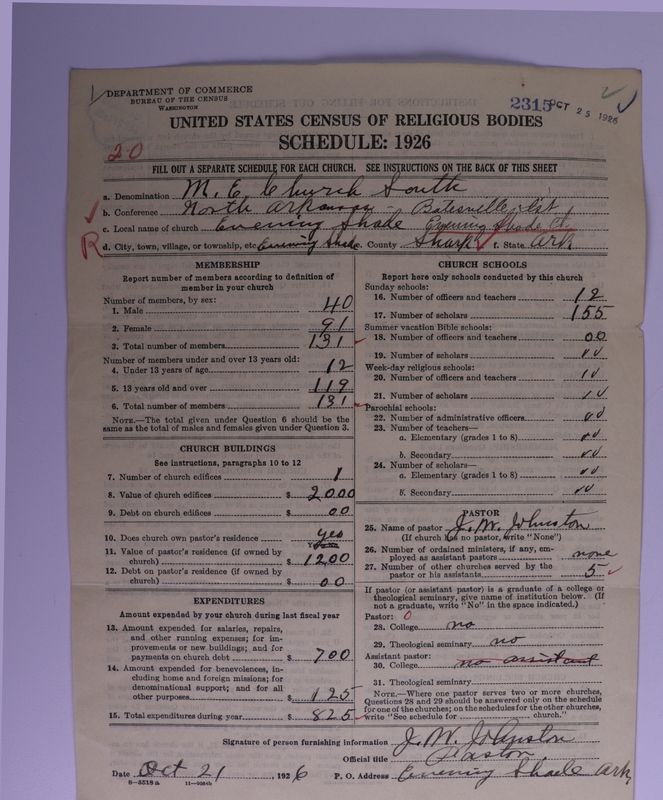 DEPARTMENT OF COMMERCE
BUREAU OF THE CENSUS
WASHINGTON
2315 OCT 25 1926
UNITED STATES CENSUS OF RELIGIOUS BODIES
SCHEDULE: 1926
20
FILL OUT A SEPARATE SCHEDULE FOR EACH CHURCH. SEE INSTRUCTIONS ON THE BACK OF THIS SHEET
a. Denomination M. E. Church South
b. Conference North Arkansas - Batesville Dist
c. Local name of church Evening Shade Evening Shade Ct.
R d. City, town, village, or township, etc. Evening Shade County Sharp f. State Ark
MEMBERSHIP
Report number of members according to definition of
member in your church
Number of members, by sex:
1. Male 40
2. Female 91
3. Total number of members 131
Number of members under and over 13 years old:
4. Under 13 years of age 12
5. 13 years old and over 119
6. Total number of members 131
NOTE.—The total given under Question 6 should be the
same as the total of males and females given under Question 3.
CHURCH BUILDINGS
See instructions, paragraphs 10 to 12
7. Number of church edifices 1
8. Value of church edifices $ 2000
9. Debt on church edifices $ 00
10. Does church own pastor's residence yes
11. Value of pastor's residence (if owned by
church) $ 1200
12. Debt on pastor's residence (if owned by
church) $ 00
EXPENDITURES
Amount expended by your church during last fiscal year
13. Amount expended for salaries, repairs,
and other running expenses; for im-
provements or new buildings; and for
payments on church debt $ 700
14. Amount expended for benevolences, in-
cluding home and foreign missions; for
denominational support; and for all
other purposes $ 125
15. Total expenditures during year $ 825
CHURCH SCHOOLS
Report here only schools conducted by this church
Sunday schools:
16. Number of officers and teachers 12
17. Number of scholars 155
Summer vacation Bible schools:
18. Number of officers and teachers 00
19. Number of scholars
Week-day religious schools:
20. Number of officers and teachers
21. Number of scholars
Parochial schools:
22. Number of administrative officers
23. Number of teachers—
a. Elementary (grades 1 to 8)
b. Secondary
24. Number of scholars—
a. Elementary (grades 1 to 8)
b. Secondary
PASTOR
25. Name of pastor J. W. Johnston
(If church has no pastor, write "None")
26. Number of ordained ministers, if any, em-
ployed as assistant pastors none
27. Number of other churches served by the
pastor or his assistants 5
If pastor (or assistant pastor) is a graduate of a college or
theological seminary, give name of institution below. (If
not a graduate, write "No" in the space indicated.)
Pastor: 0
28. College no
29. Theological seminary no
Assistant pastor:
30. College no assistant
31. Theological seminary
NOTE.—Where one pastor serves two or more churches,
Questions 28 and 29 should be answered only on the schedule
for one of the churches; on the schedules for the other churches,
write "See schedule for church."
Signature of person furnishing information J. W. Johnston
Official title Pastor
Date Oct 21, 1926 P. O. Address Evening Shade Ark